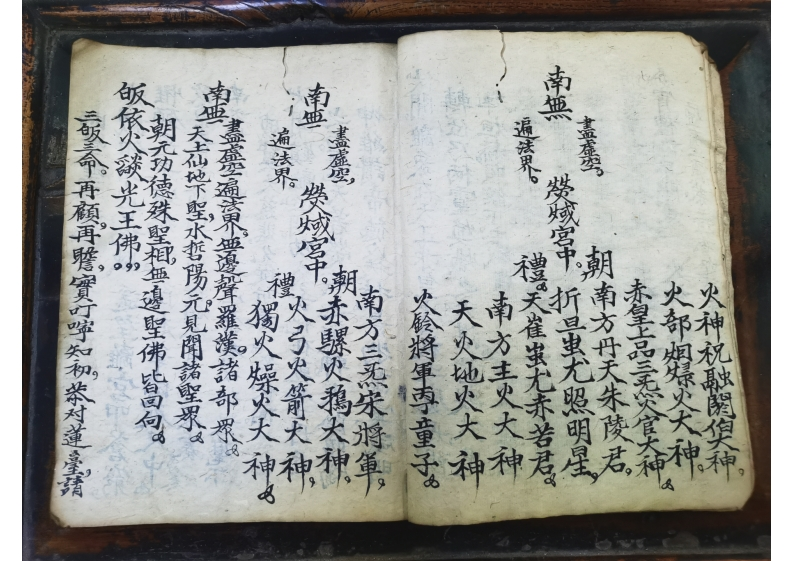 南無
盡虛空，
遍法界。
熒惑宮中。
朝
禮
火神祝融閼伯大神。
火部炯㷸火大神，
赤皇上品三炁火官大神。
南方丹天朱陵君，
折旦蚩尤照明星，
天崔蚩尤赤若君。
南方主火大神
天火地火大神
火鈴將軍丙丁童子。
南無
盡虛空，
遍法界。
熒惑宮中。
朝
禮
南方三炁宋將軍，
赤騾火鴉大神，
火弓火箭大神，
獨火燥火大神。
盡虛空遍法界，無邊聲羅漢諸部眾。
南無
天上仙地下聖，水哲陽元見聞諸聖眾。
朝元功德殊聖相，無邊聖佛皆回向。
皈依火燄光王佛
三皈三命。再顧，再瞻，寶叮嚀知初。恭对蓮臺，請